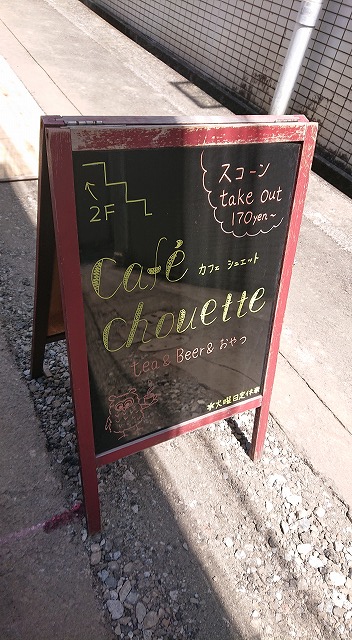 2F
スコーン
take out
170yen~
café
カフェ シュエット
chouette
tea & Beer & おやつ
★火曜日定休業